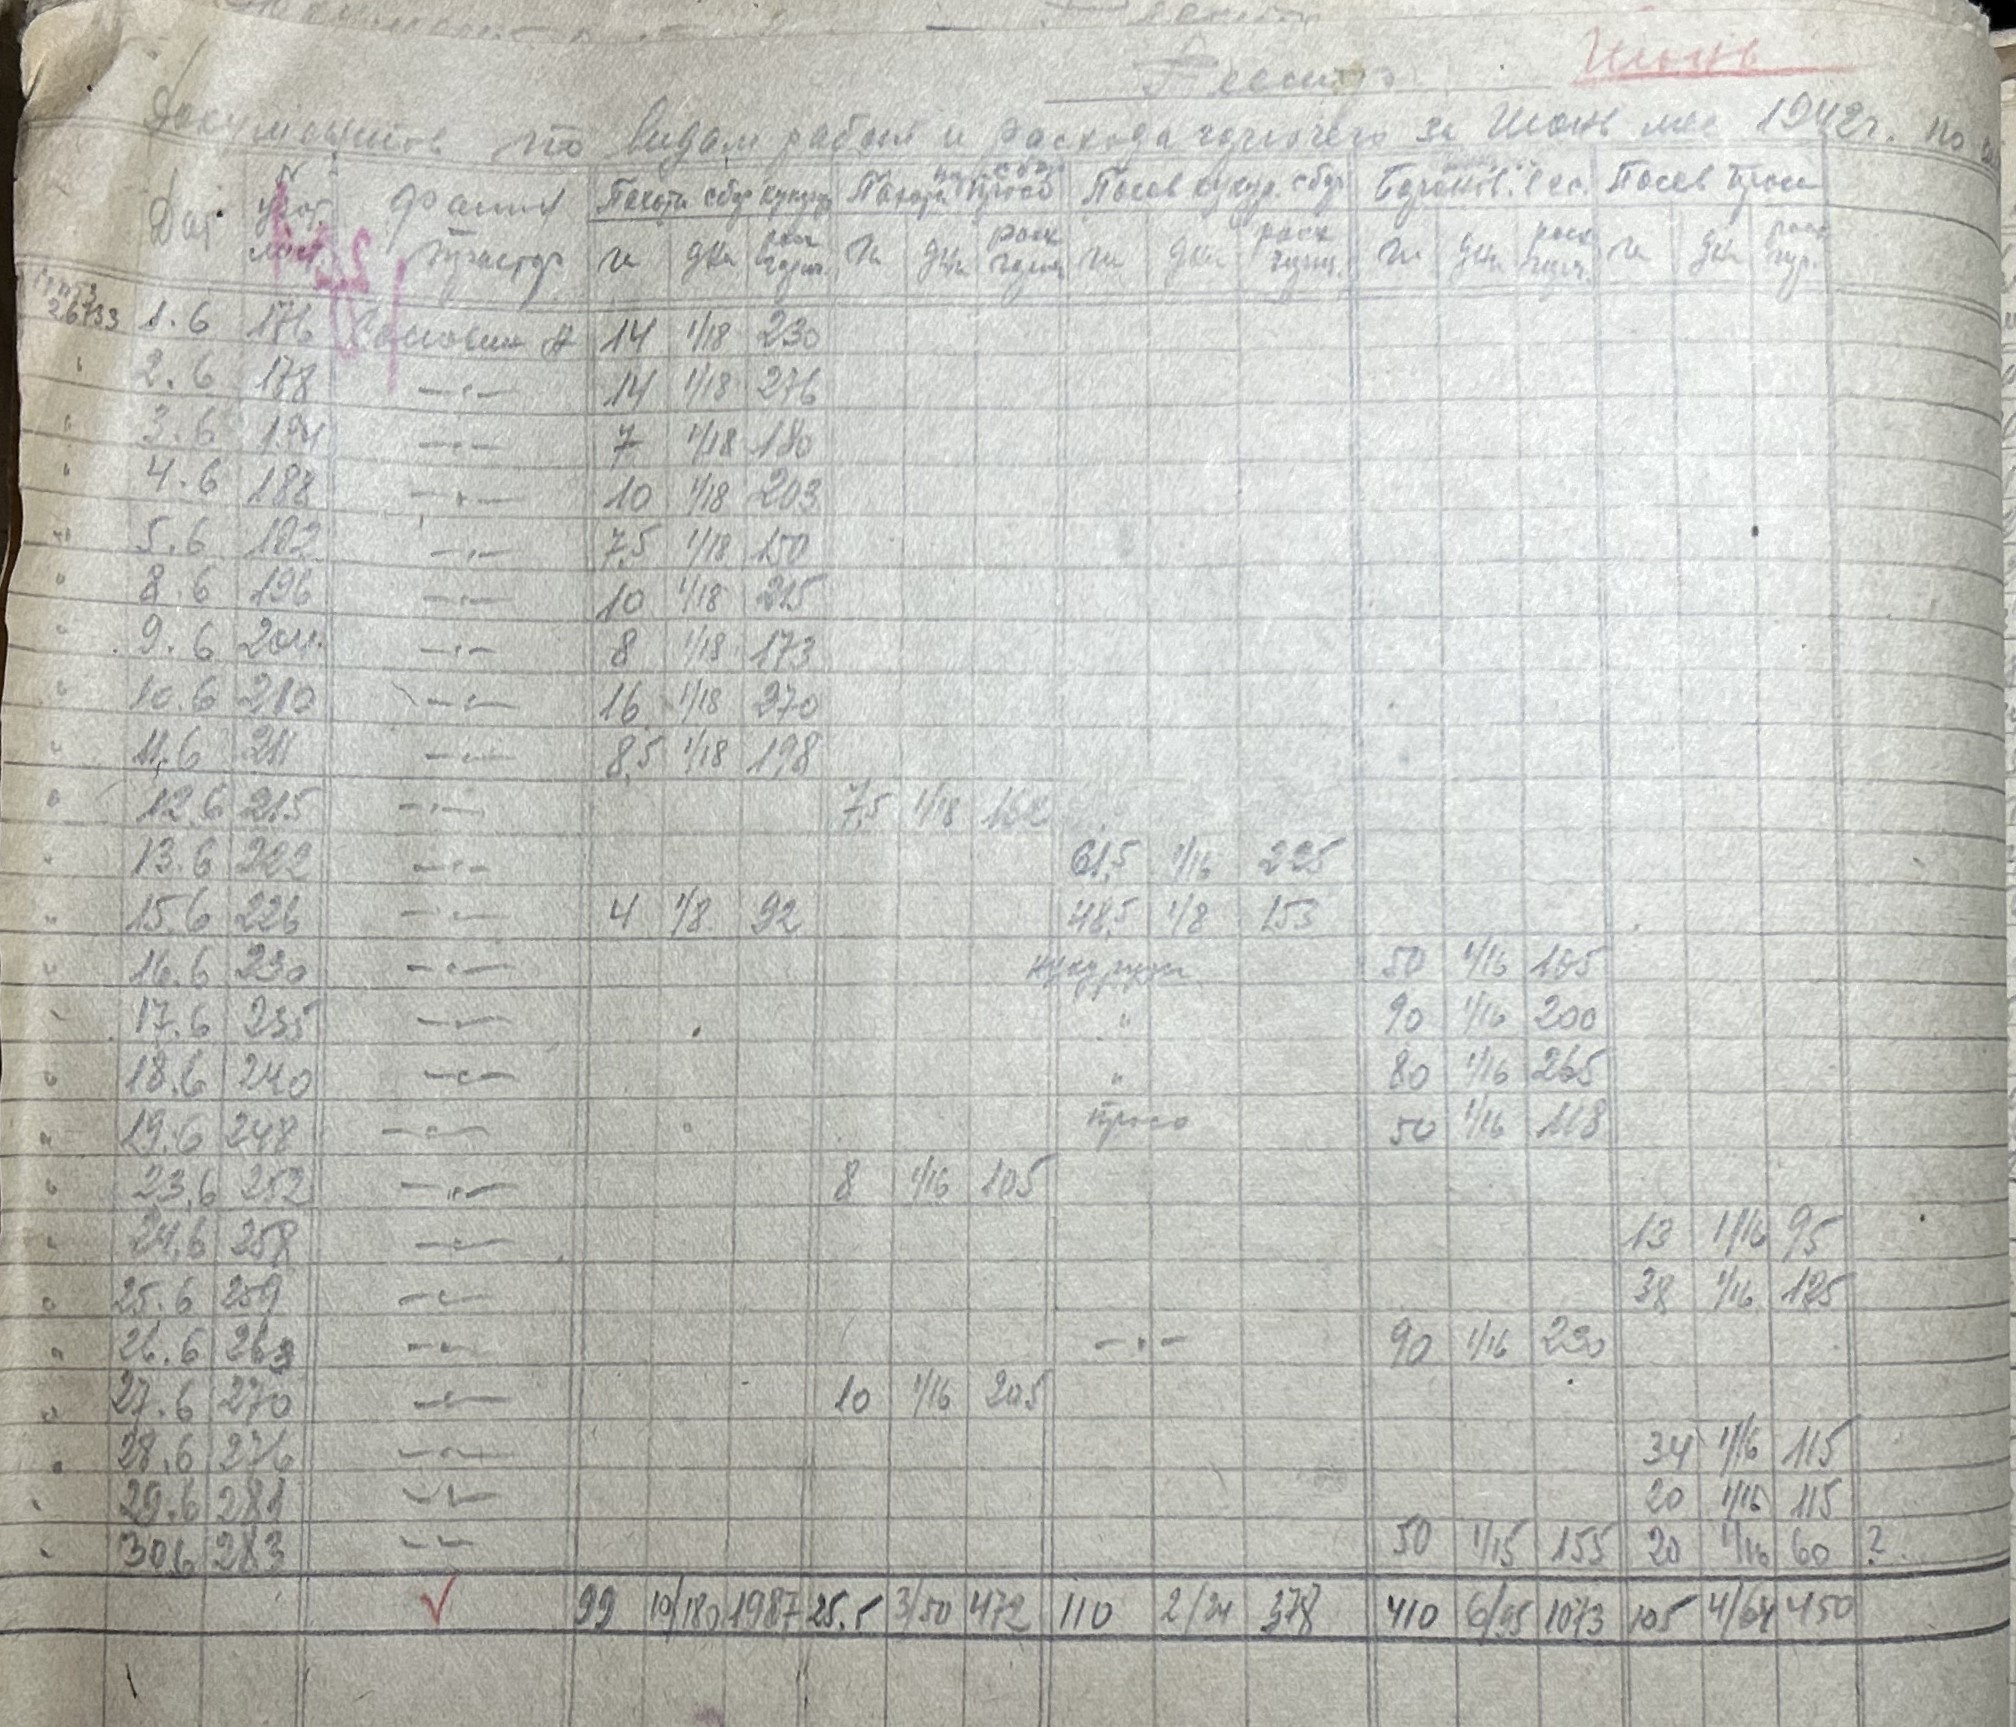 Июнь
Реестр
Документов по видам работ и расхода горючего за Июнь мес 1942г. по
Дат № учет. лист. Фамил трактор Пахота сбор кукуруз Пахота сбор просо Посев кукур. сбор Боронов. Посев проса
га дни расх горюч. га дни расх горюч га дни расх горюч. га дни расх горюч. га дни расх гор.
26733 1.6 176 14 1/18 230
" 2.6 178 —"— 14 1/18 276
" 3.6 —"— 7 1/18 180
" 4.6 188 —"— 10 1/18 203
" 5.6 192 —"— 7,5 1/18 150
" 8.6 196 —"— 10 1/18 215
" 9.6 204 —"— 8 1/18 173
" 10.6 210 —"— 16 1/18 270
" 11.6 211 —"— 8,5 1/18 198
" 12.6 215 —"— 7,5 1/18
" 13.6 222 —"— 61,5 1/16 225
" 15.6 226 —"— 4 1/8 92 48,5 1/8 153
" 16.6 230 —"— кукуруза 50 1/16 105
" 17.6 235 —"— " 90 1/16 200
" 18.6 240 —"— " 80 1/16 265
" 19.6 248 —"— просо 50 1/16 118
" 23.6 252 —"— 8 1/16 105
" 24.6 258 —"— 13 1/16 95
" 25.6 259 —"— 38 1/16 125
" 26.6 263 —"— —"— 90 1/16 230
" 27.6 270 —"— 10 1/16 205
" 28.6 276 —"— 34 1/16 115
" 29.6 281 —"— 20 1/16 115
" 30.6 283 —"— 50 1/15 155 20 1/16 60 ?
99 10/180 1987 25.5 3/50 472 110 2/24 378 410 6/95 1073 105 4/64 450